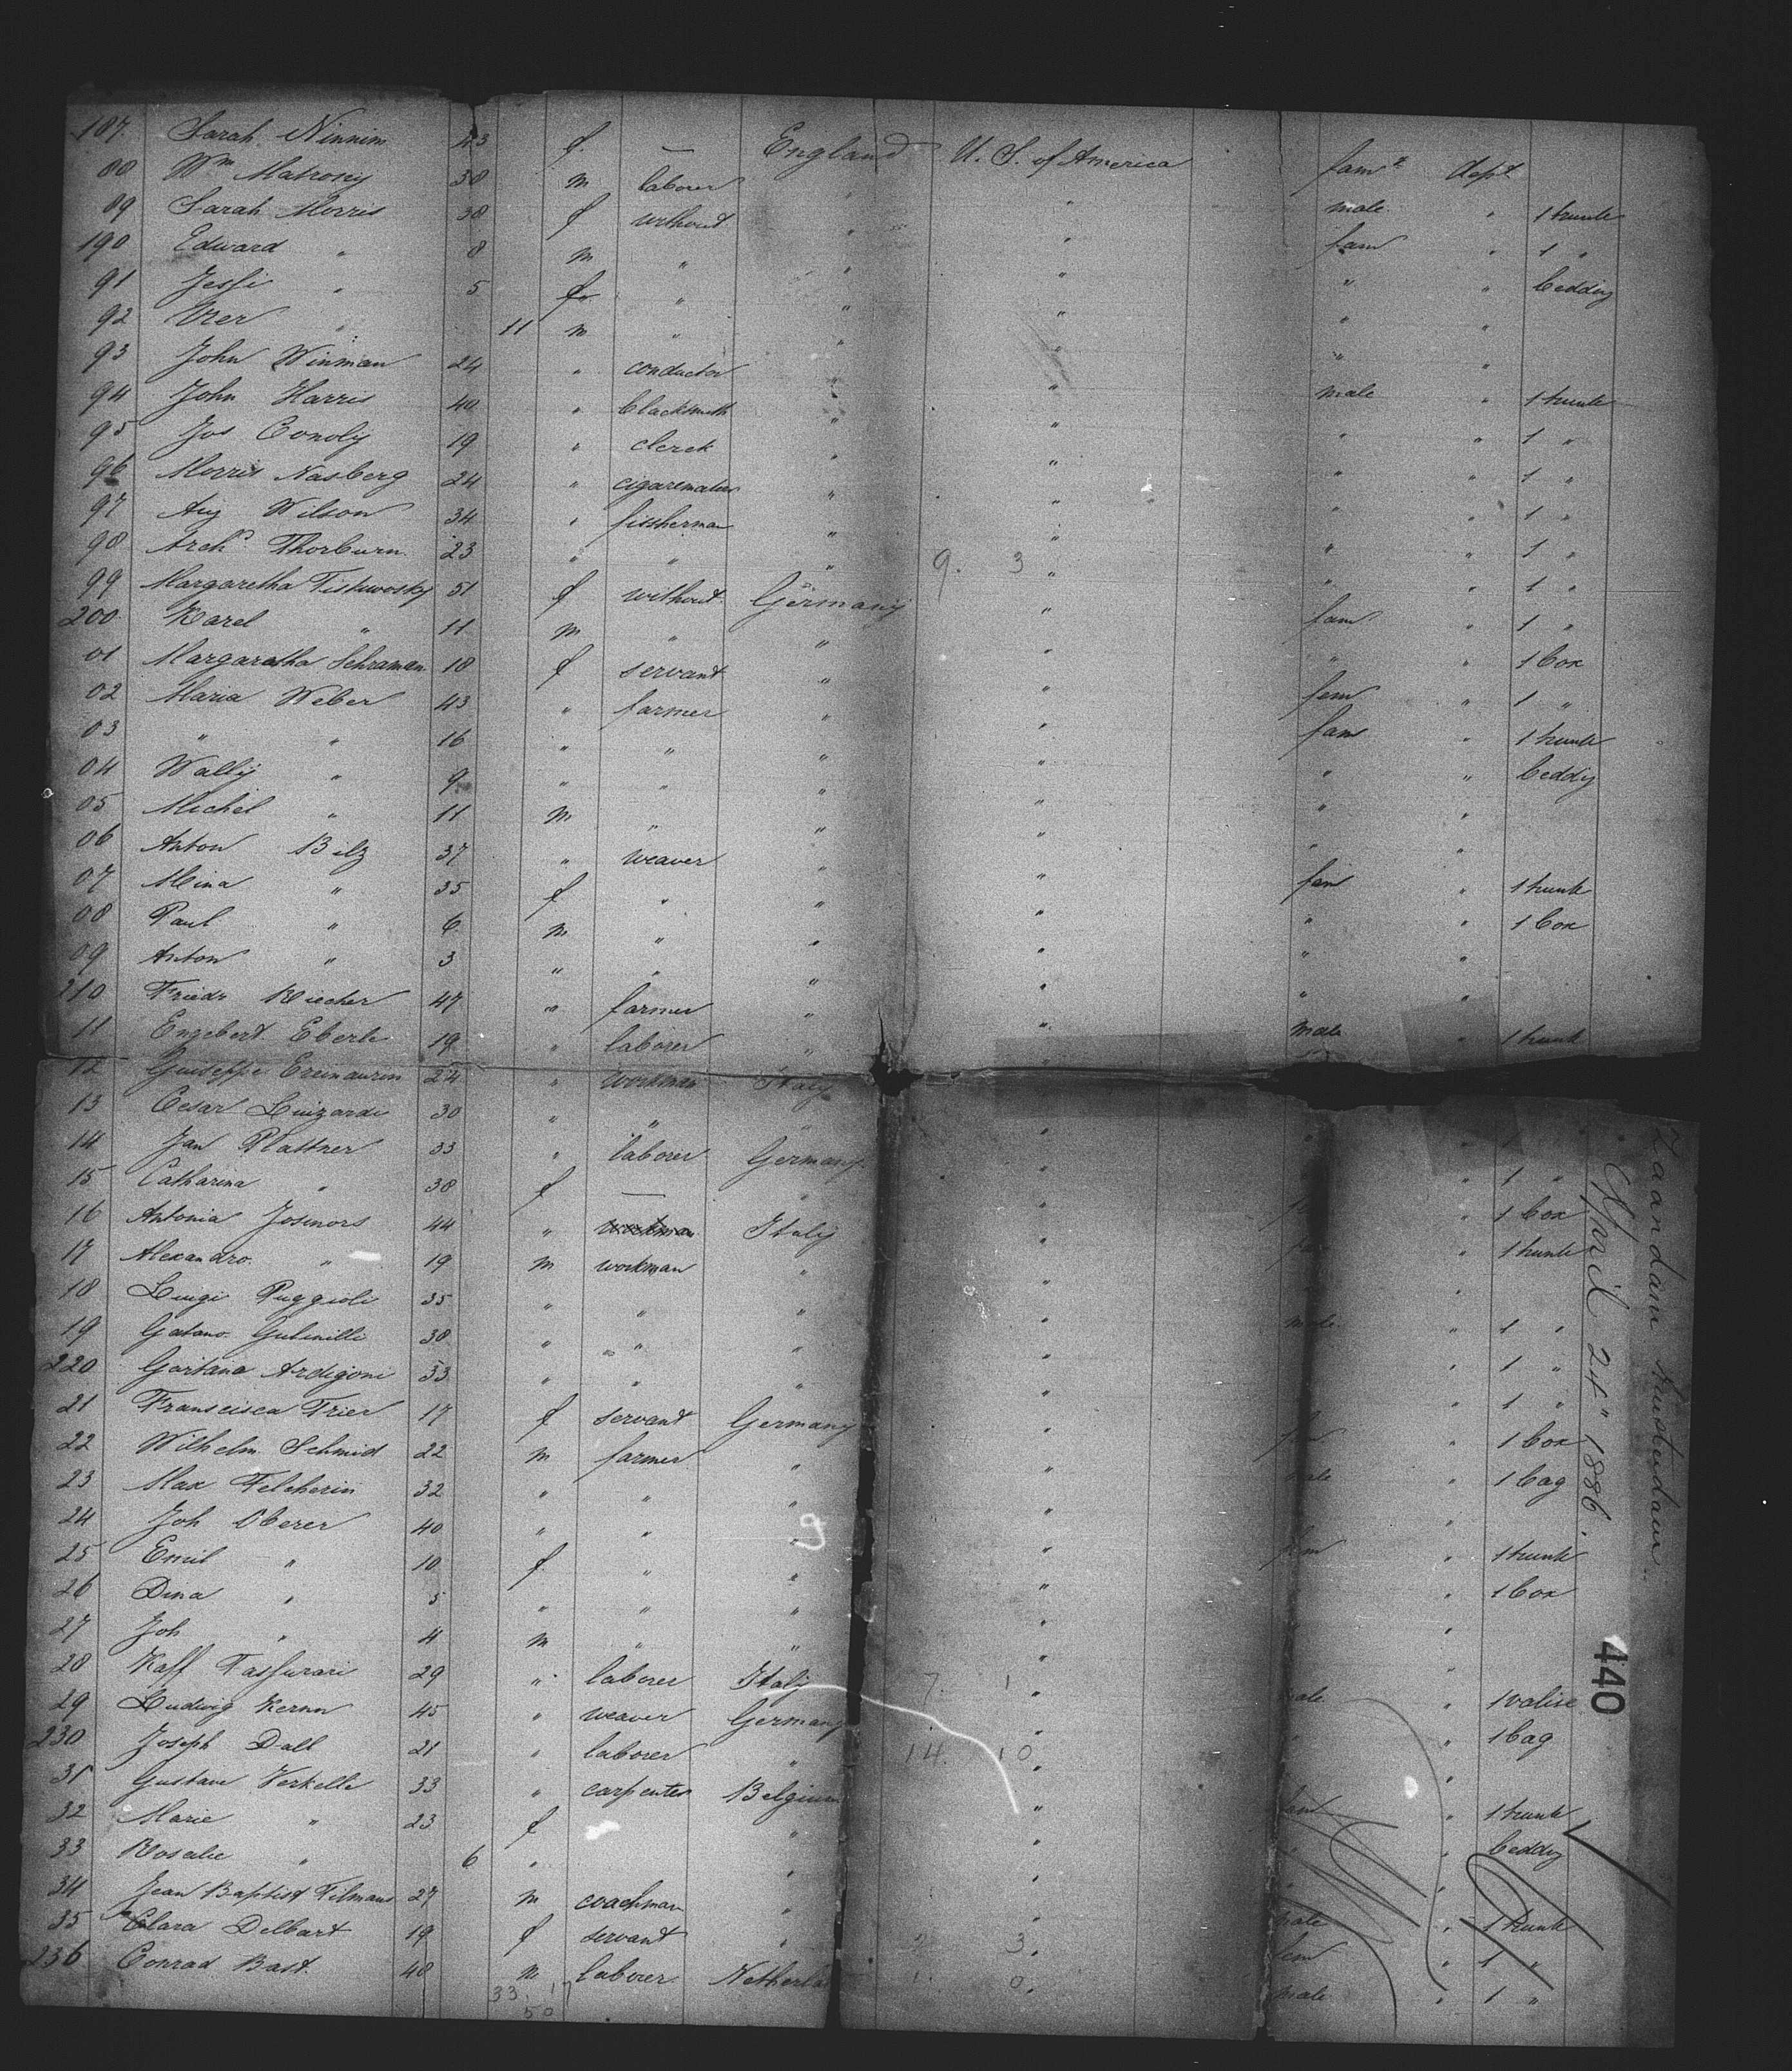 187. Sarah Ninnim 43 f. — England U. S. of America fam. dept
88 Wm Matrosy 38 m laborer " " male " 1 trunk
89 Sarah Morris 38 f without " " fam " 1 "
190 Edward " 8 m " " " " " bedding
91 Jessi " 5 f " " " " "
92 " 11 m " " " " "
93 John Winman 24 " conductor " " male " 1 trunk
94 John Harris 40 " blacksmith " " " " 1 "
95 Jos Conoly 19 " clerck " " " " 1 "
96 Morris Nasberg 24 " cigaremaker " " " " 1 "
97 Aug Wilson 34 " fissherman " " " " 1 "
98 Archd Thorburn 23 " " " 9. 3 " " " 1 "
99 Margaretha Tiskwosky 51 f without Germany " fam " 1 "
200 Karel " 11 m " " " " " 1 box
01 Margaretha Schraman 18 f servant " " fem " 1 "
02 Maria Weber 43 " farmer " " fam " 1 trunk
03 " " 16 " " " " " " beddig
04 Wally " 9 " " " " " "
05 Michel " 11 m " " " " "
06 Anton Bilz 37 " weaver " " fam " 1 trunk
07 Mina " 35 f " " " " " 1 box
08 Paul " 6 m " " " " "
09 Anton " 3 " " " " " "
210 Friedr Riecher 47 " farmer " " male " 1 trunk
11 Engebert Eberle 19 " laborer "
12 Guiseppe 24 " workman Italy
13 Cesar Luizardi 30 " " " " 1 "
14 Jan Plattner 33 " laborer Germany " " 1 box
15 Catharina " 38 f — " " " 1 trunk
16 Antonia Josinors 44 " workman Italy " "
17 Alexandro " 19 m workman " " male " 1 "
18 Luigi Puggioli 35 " " " " " 1 "
19 Gaetano Gulinilli 38 " " " " " 1 "
220 Gaitana Ardigoni 33 " " " " 1 box
21 Franscisca Trier 17 f servant Germany " " 1 bag
22 Wilhelm Schmid 22 m farmer " " male "
23 Max Felcherin 32 " " " " " 1 trunk
24 Joh Oberer 40 " " " " fam " 1 box
25 Emil " 10 f " " " "
26 Dina " 5 " " " " "
27 Joh " 4 m " " " "
28 Kaff Tassurari 29 " laborer Italy 7. 1 " male " 1 valise
29 Ludwig Kernn 45 " weaver Germany " " " 1 bag
230 Joseph Dall 21 " laborer " 14. 10 " "
31 Gustave Verkelle 33 " carpenter Belgium " fam " 1 trunk
32 Marie " 23 f " " " " beddig
33 Rosalie " 6 " " " " "
34 Jean Baptist Tilmans 27 m coachman " " male " 1 trunk
35 Clara Delbart 19 f servant " 3. fem " 1 "
236 Conrad Bast. 48 m laborer Netherla 1. 0. male " 1 "
33. 17
50
Zaandam Amsterdam
April 24" 1886.
440